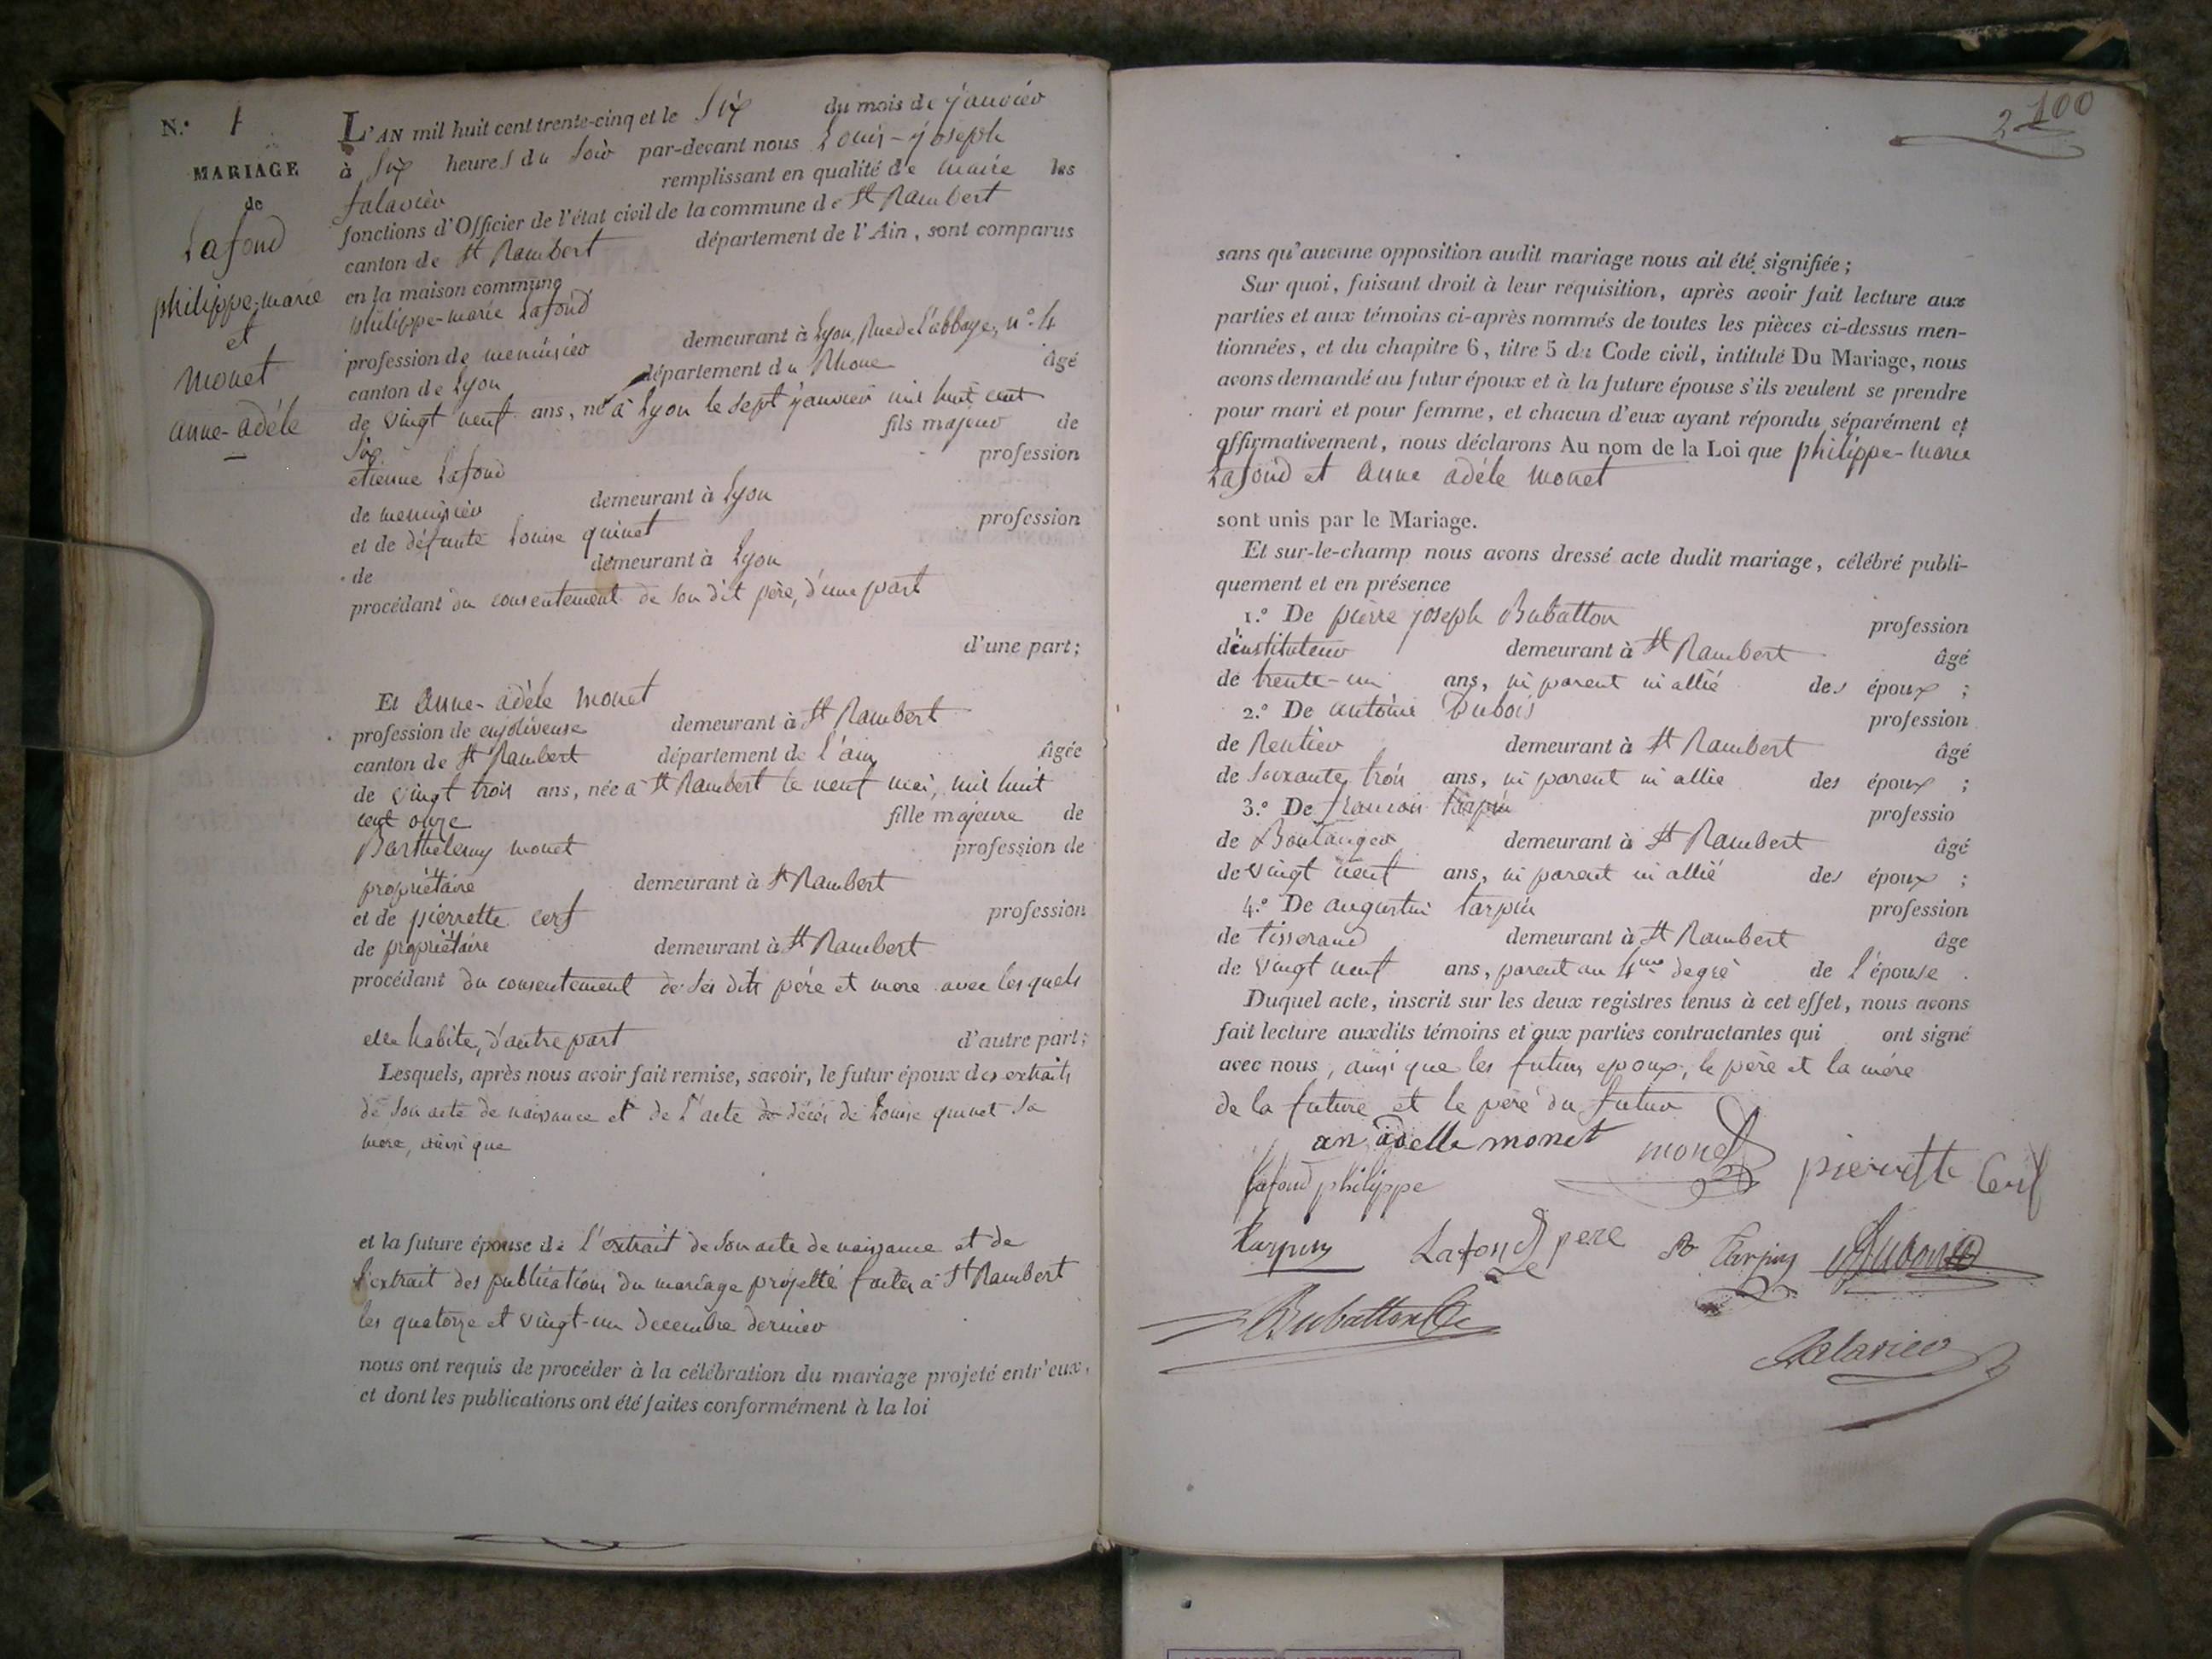 N.° 1
MARIAGE
de
Lafond
philippe-marie
et
monet
anne-adéle
L'AN mil huit cent trente-cinq et le Six du mois de janvier
à Six heures du Soir par-devant nous Louis-joseph
falavier remplissant en qualité de maire les
fonctions d'Officier de l'état civil de la commune de St Rambert
canton de St Rambert département de l'Ain, sont comparus
en la maison commune
philippe-marie Lafond
profession de menuisier demeurant à Lyon, Rue de l'abbaye, n°. 4
canton de Lyon département du Rhone âgé
de vingt neuf ans, né à Lyon le sept janvier mil huit cent
Six fils majeur de
etienne Lafond profession
de menuisier demeurant à Lyon
et de défunte Louise quinet profession
de demeurant à Lyon
procédant du consentement de son dit père, d'une part
d'une part;
Et anne-adèle monet
profession de enjoliveuse demeurant à St Rambert
canton de St Rambert département de l'ain âgée
de vingt trois ans, née à St Rambert le neuf mai, mil huit
cent onze fille majeure de
Barthelemy monet profession de
propriétaire demeurant à St Rambert
et de pierrette cerf profession
de propriétaire demeurant à St Rambert
procédant du consentement de ses dits père et mere avec lesquels
elle habite, d'autre part d'autre part;
Lesquels, après nous avoir fait remise, savoir, le futur époux des extraits
de son acte de naissance et de l'acte de décès de Louise quinet sa
mere, ainsi que
et la future épouse de l'extrait de son acte de naissance et de
l'extrait des publications du mariage projetté faites à St Rambert
les quatorze et vingt-un decembre dernier
nous ont requis de procéder à la célébration du mariage projeté entr'eux,
et dont les publications ont été faites conformément à la loi
2 100
sans qu'aucune opposition audit mariage nous ait été signifiée;
Sur quoi, faisant droit à leur réquisition, après avoir fait lecture aux
parties et aux témoins ci-après nommés de toutes les pièces ci-dessus men-
tionnées, et du chapitre 6, titre 5 du Code civil, intitulé Du Mariage, nous
avons demandé au futur époux et à la future épouse s'ils veulent se prendre
pour mari et pour femme, et chacun d'eux ayant répondu séparément et
affirmativement, nous déclarons Au nom de la Loi que philippe-marie
Lafond et anne adéle monet
sont unis par le Mariage.
Et sur-le-champ nous avons dressé acte dudit mariage, célébré publi-
quement et en présence
1.° De pierre joseph Bubatton profession
d'instituteur demeurant à St Rambert âgé
de trente-un ans, ni parent ni allié des époux ;
2.° De antoine Dubois profession
de Rentier demeurant à St Rambert âgé
de soixante trois ans, ni parent ni allié des époux ;
3.° De francois tarpin professio
de Boulanger demeurant à St Rambert âgé
de vingt neuf ans, ni parent ni allié des époux ;
4.° De augustin tarpin profession
de tisserand demeurant à St Rambert âge
de vingt neuf ans, parent au 4me degré de l'épouse .
Duquel acte, inscrit sur les deux registres tenus à cet effet, nous avons
fait lecture auxdits témoins et aux parties contractantes qui ont signé
avec nous, ainsi que les futurs epoux, le père et la mére
de la future et le père du futur
an adelle monet monet pierrette Cerf
lafond philippe
tarpin Lafond pere tarpin Dubois
Bubatton
falavier